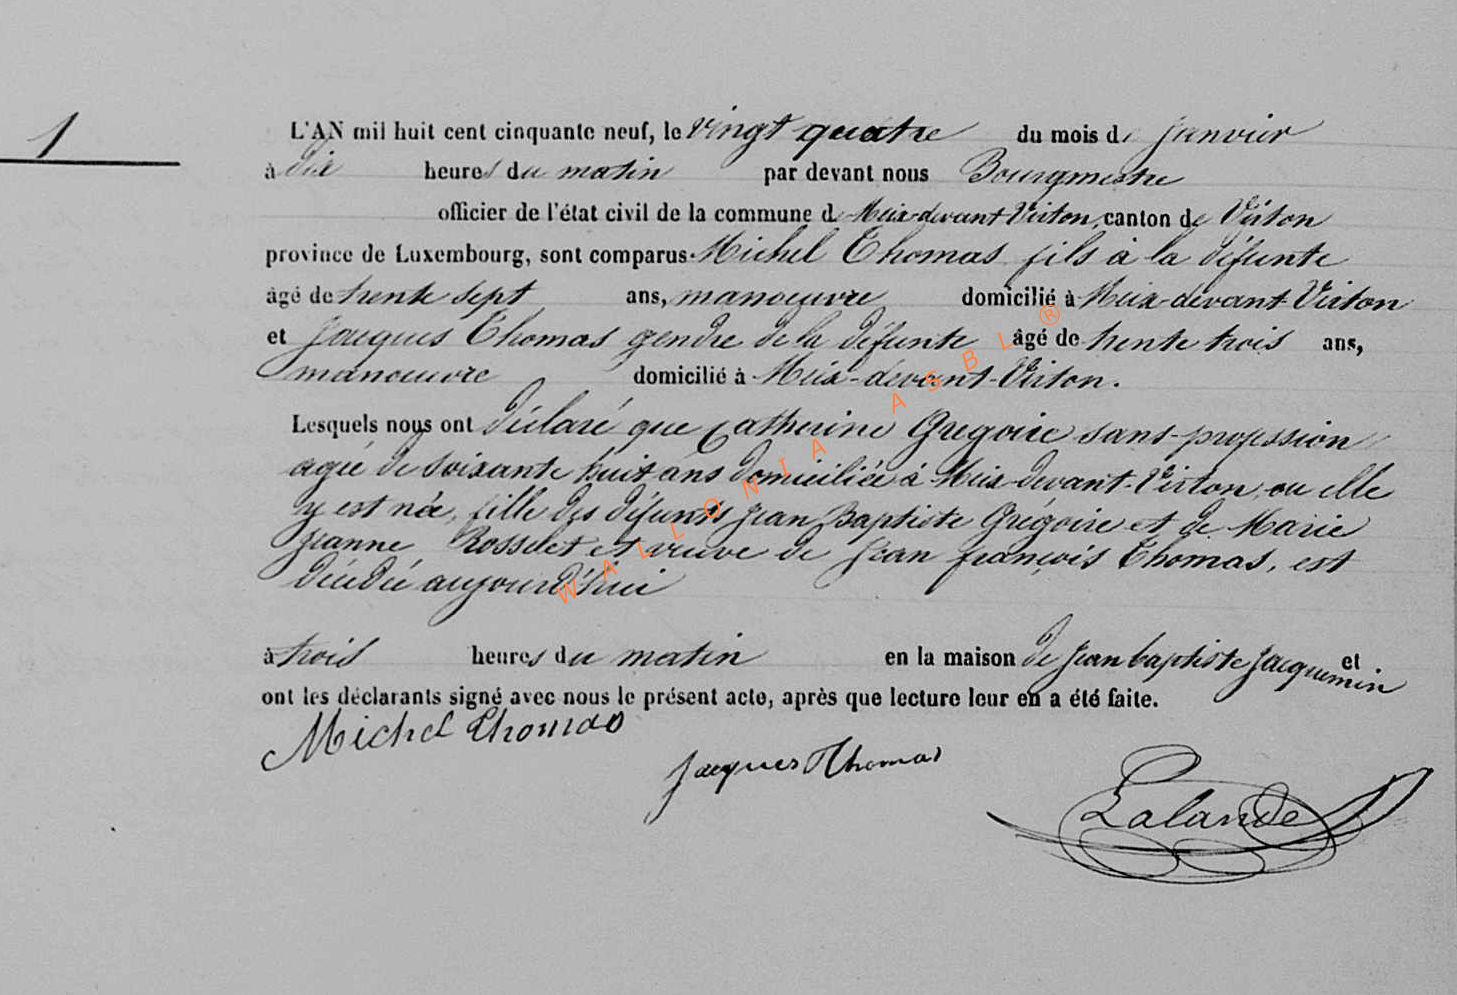 1
L'AN mil huit cent cinquante neuf, le vingt quatre du mois de Janvier
à dix heures du matin par devant nous Bourgmestre
officier de l'état civil de la commune de Meix-devant Virton, canton de Virton
province de Luxembourg, sont comparus Michel Thomas fils à la défunte
âgé de trente sept ans, manoeuvre domicilié à Meix-devant-Virton
et Jacques Thomas gendre de la défunte âgé de trente trois ans,
manoeuvre domicilié à Meix-devant-Virton.
Lesquels nous ont déclaré que Catherine Grégoire sans-profession
agée de soixante huit ans domiciliée à Meix-devant-Virton, ou elle
y est née, fille des défunts Jean Baptiste Grégoire et de Marie
Jeanne Rosselet et veuve de Jean françois Thomas, est
décédée aujourd'hui
à trois heures du matin en la maison de Jean baptiste Jacquemin et
ont les déclarants signé avec nous le présent acte, après que lecture leur en a été faite.
Michel Thomas
Jacques Thomas
Lalande
WALLONIA ASBL ®